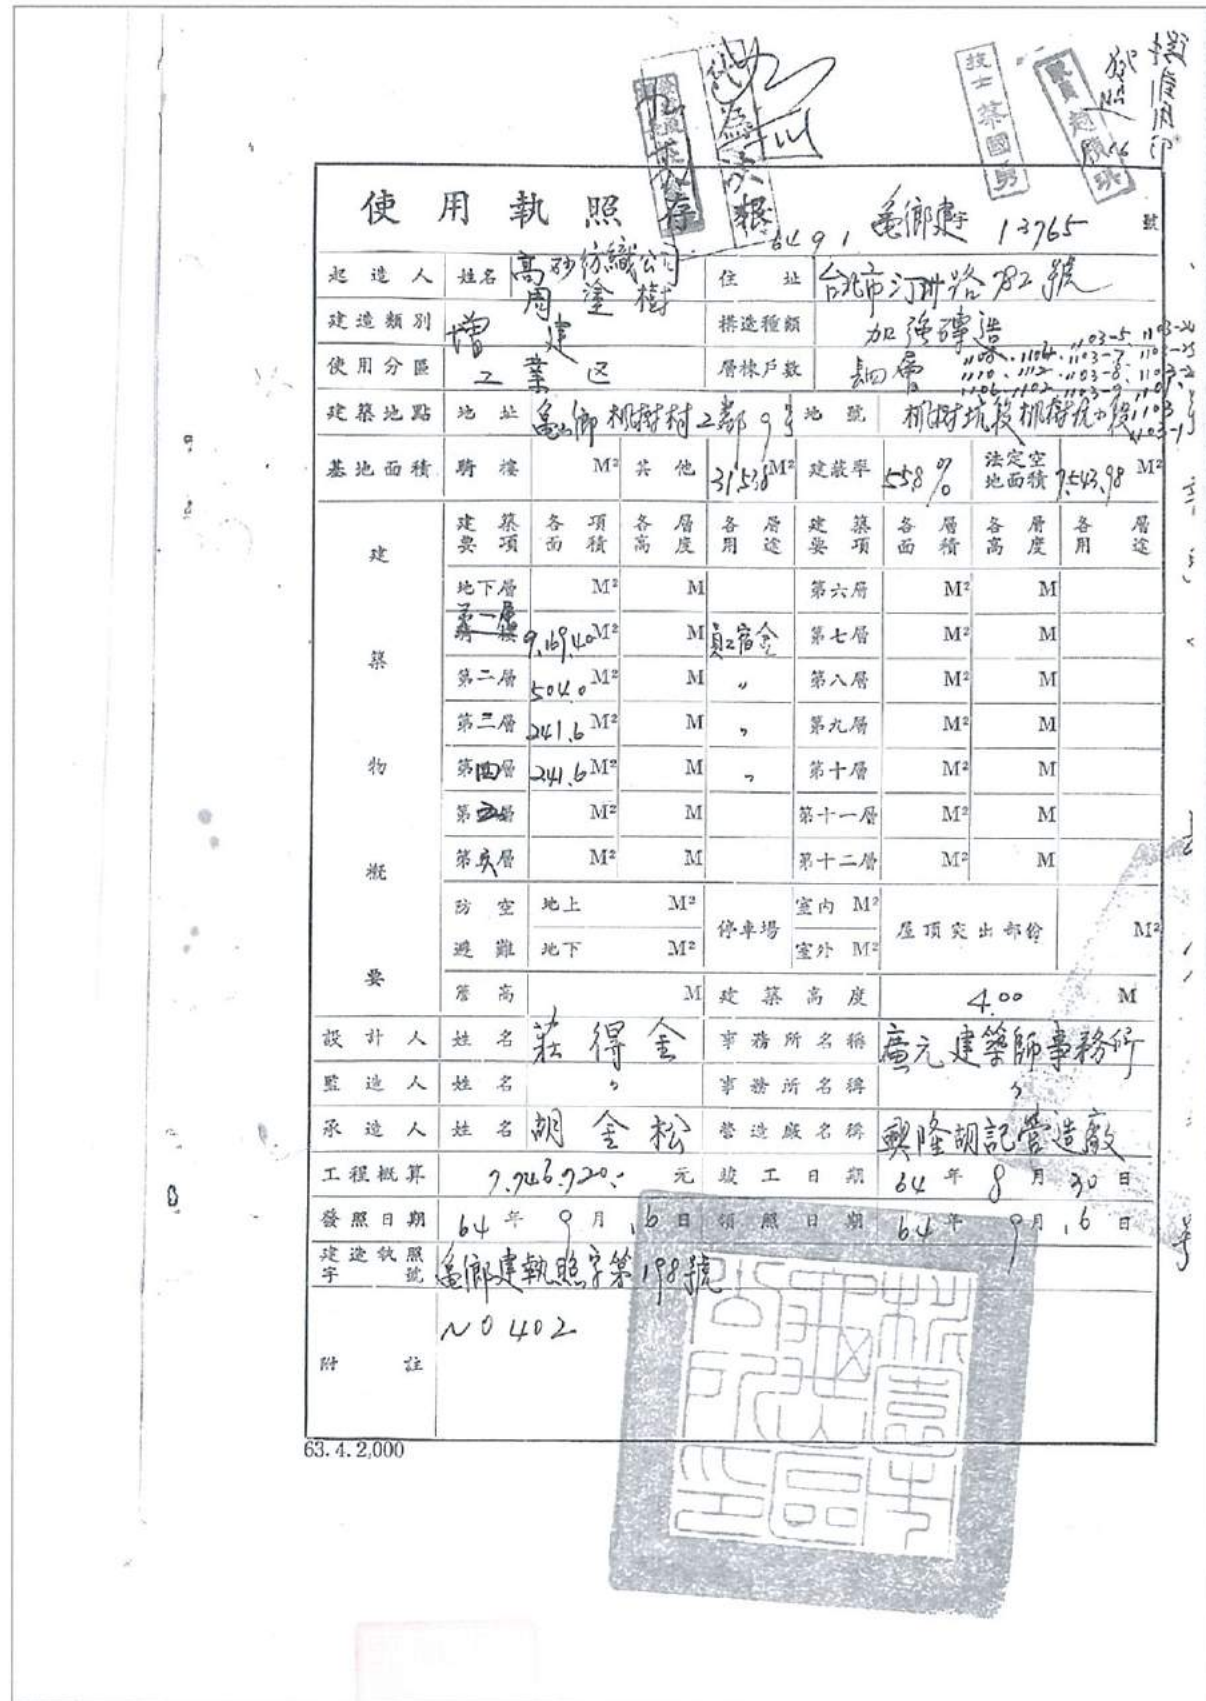 擬准用印
技士 蔡國勇
使用執照存根
64 9 1 龜鄉建字 13765 號
起造人 姓名 高砂紡織公司 周塗樹 住址 台北市汀州路782號
建造類別 增建 構造種類 加強磚造
使用分區 工業区 層棟戶數 四層
1103-5
1108 1104 1103-7
1110 1112 1103-8
1106 1102 1103-9
建築地點 地址 龜山鄉桃樹村2鄰9号 地號 桃樹坑段桃樹坑小段1103
基地面積 騎樓 M² 其他 31,538 M² 建蔽率 55.8 % 法定空地面積 7,543.98 M²
建築物概要
建築要項 各項面積 各層高度 各層用途 建築要項 各層面積 各層高度 各層用途
地下層 M² M 第六層 M² M
第一層 騎樓 9,169.40 M² M 員工宿舍 第七層 M² M
第二層 504.0 M² M 〃 第八層 M² M
第三層 241.6 M² M 〃 第九層 M² M
第四層 241.6 M² M 〃 第十層 M² M
第五層 M² M 第十一層 M² M
第六層 M² M 第十二層 M² M
防空避難 地上 M² 停車場 室內 M² 屋頂突出部份 M²
地下 M² 室外 M²
簷高 M 建築高度 4.00 M
設計人 姓名 莊得金 事務所名稱 廣元建築師事務所
監造人 姓名 〃 事務所名稱 〃
承造人 姓名 胡金松 營造廠名稱 興隆胡記營造廠
工程概算 7,746,720.- 元 竣工日期 64年8月30日
發照日期 64年9月16日 領照日期 64年9月16日
建造執照字號 龜鄉建執照字第198號
附註 NO 402
63.4.2,000